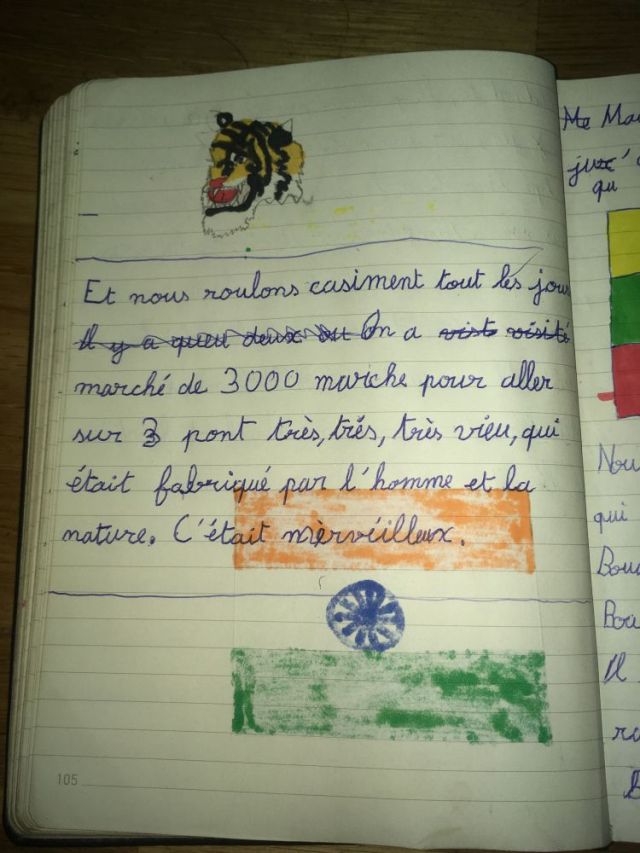 Et nous roulons casiment tout les jours
Il y a queu deux ou On a visté visité
marché de 3000 marche pour aller
sur 3 pont très, très, très vieu, qui
était fabriqué par l'homme et la
nature. C'était mèrveilleux.
105
Me Mou
qu
Nou
qui
Bou
Il